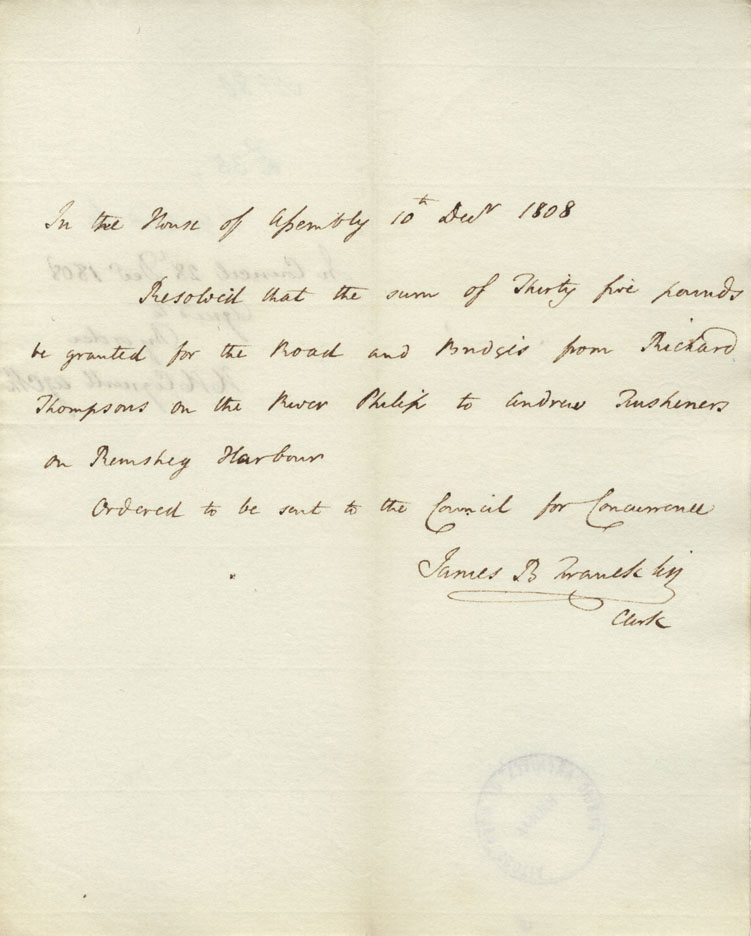 In the House of Assembly 10th Decr 1808
Resolv'd that the sum of Thirty five pounds
be granted for the Road and Bridges from Richard
Thompsons on the River Philip to Andrew
on Remsheg Harbour
Ordered to be sent to the Council for Concurrence
James B Francklin
Clerk
In Council 28 Decr 1808